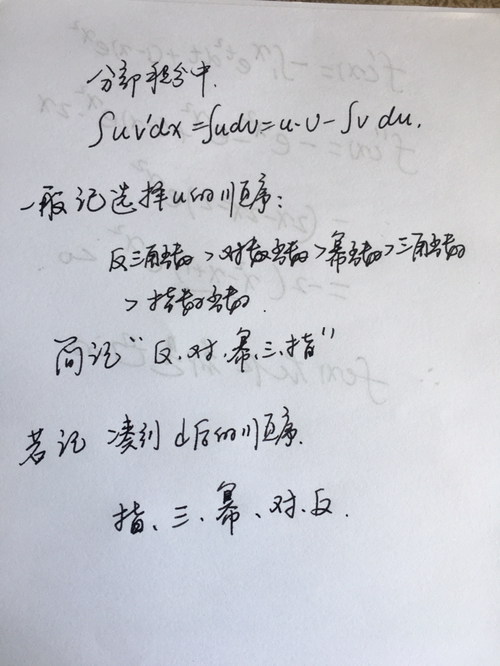 分部积分中.
∫uv'dx=∫udv=u·v-∫vdu.
一般记选择u的顺序:
反三角函数>对数函数>幂函数>三角函数
>指数函数.
简记"反.对.幂.三.指"
若记 凑到d后的顺序.
指、三、幂、对、反.